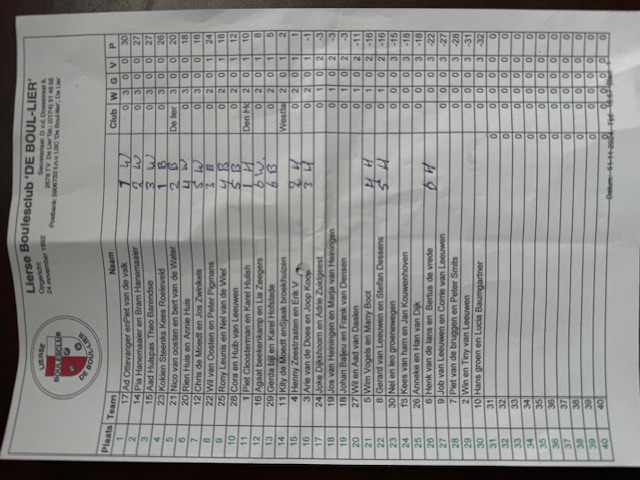 LIERSE
BOULESCLUB
DE BOUL-LIER
Lierse Boulesclub 'DE BOUL-LIER'
Opgericht:
24 november 1992
Plaats Team Naam Club W G V P
1 17 Ad Ottevanger en Piet van de valk 1 W 3 0 0 30
2 14 Pia Hanemaaier en Bram Hanemaaier 2 W 3 0 0 27
3 15 Aad Hulspas Theo Barendse 3 W 3 0 0 27
4 23 Kokien Steenks Kees Roeleveld 1 B 3 0 0 26
5 21 Nico van oosten en bert van de Water 2 B De lier 3 0 0 20
6 20 Rien Huis en Annie Huis 4 W 3 0 0 18
7 12 Chris de Moedt en Jos Zwinkels 5 W 3 0 0 16
8 22 Wil van Oosten en Peter Frigmans 3 B 2 0 1 24
9 25 Romy Beurie en Nel van de Wiel 4 B 2 0 1 18
10 28 Cora en Huib van Leeuwen 5 B 2 0 1 12
11 1 Piet Cloosterman en Karel Hulsh 1 4 Den Ho 2 0 1 10
12 16 Agaat beekenkamp en Lia Zeegers 6 W 2 0 1 8
13 29 Gerda bijl en Karel Hofstede 6 B 2 0 1 5
14 11 Kitty de Moedt en Sjaak broekhuizen Westla 2 0 1 2
15 4 Henny Zeestraaten en Erik V 2 4 2 0 1 1
16 3 Arie van der Does en Joop Kooij 3 4 2 0 1 -1
17 24 Joke Dijkshoorn en Adrie Zuidgeest 1 0 2 -3
18 19 Jos van Heiningen en Marja van Heiningen 1 0 2 -3
19 18 Johan Baljeu en Frank van Densen 1 0 2 -3
20 27 Wil en Aad van Daalen 1 0 2 -11
21 5 Wim Vogels en Marry Boot 4 4 1 0 2 -16
22 8 Gerard van Leeuwen en Stefan Dessens 5 4 1 0 2 -16
23 30 0 0 3 -15
24 13 Kees van ham en Jan Kouwenhoven 0 0 3 -18
25 26 Anneke en Han van Dijk 0 0 3 -18
26 6 Henk van de lans en Bertus de vrede 6 4 0 0 3 -22
27 9 Job van Leeuwen en Corrie van Leeuwen 0 0 3 -27
28 7 Piet van de bruggen en Peter Smits 0 0 3 -28
29 2 Win en Tiny van Leeuwen 0 0 3 -31
30 10 Hans groen en Lucia Baumgartner 0 0 3 -32
31 31 0 0 0 0 0
32 32 0 0 0 0 0
33 33 0 0 0 0 0
34 34 0 0 0 0 0
35 35 0 0 0 0 0
36 36 0 0 0 0 0
37 37 0 0 0 0 0
38 38 0 0 0 0 0
39 39 0 0 0 0 0
40 40 0 0 0 0 0